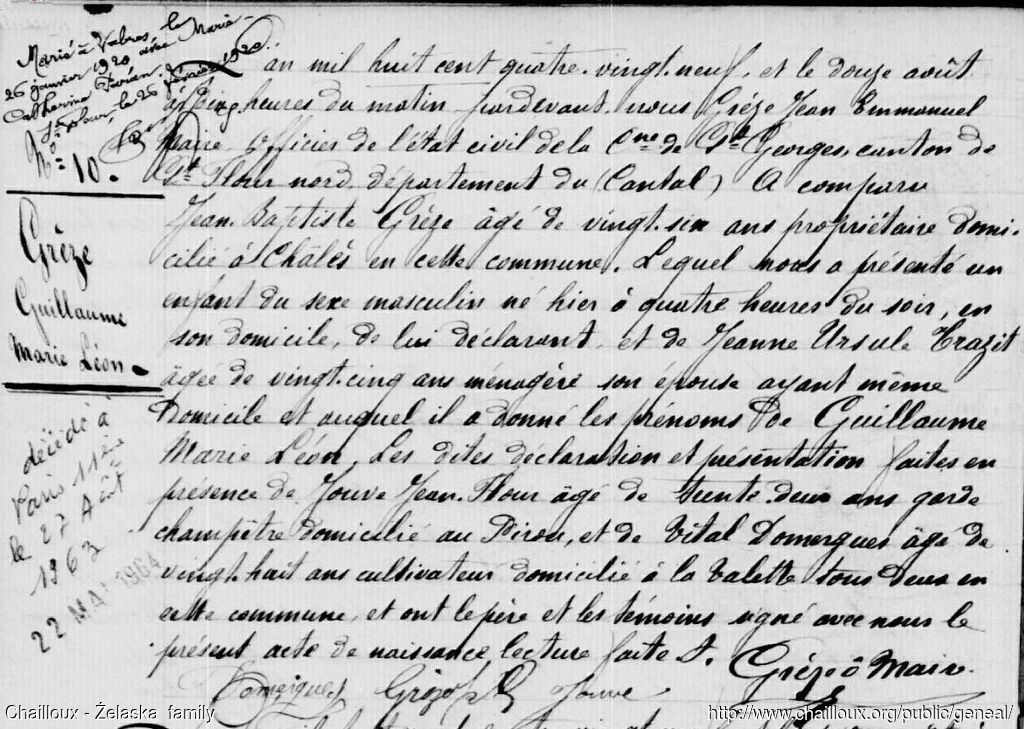 Marié à Vabres, le
26 janvier 1920, avec Marie
Catherine
St Flour, le 26 février 1920.
N° 10.
Grèze
Guillaume
Marie Léon
décédé à
Paris 11ème
le 27 Août
1963
22 MAI 1964
an mil huit cent quatre-vingt-neuf, et le douze août
à heures du matin pardevant nous Grèze Jean Emmanuel
Marie officier de l'état civil de la Cne de St Georges, canton de
St Flour nord département du (Cantal) A comparu
Jean Baptiste Grèze âgé de vingt-six ans propriétaire domi-
cilié à Châlès en cette commune. Lequel nous a présenté un
enfant du sexe masculin né hier à quatre heures du soir, en
son domicile, de lui déclarant, et de Jeanne Ursule Trazit
âgée de vingt-cinq ans ménagère son épouse ayant même
Domicile et auquel il a donné les prénoms de Guillaume
Marie Léon. Les dites déclaration et présentation faites en
présence de Jouve Jean-Flour âgé de trente-deux ans garde
champêtre domicilié au Pirou, et de Vital Domergues âgé de
vingt-huit ans cultivateur domicilié à la Valette tous deux en
cette commune, et ont le père et les témoins signé avec nous le
présent acte de naissance lecture faite.
Grèze Maire
Domergues Grèze Jouve
Chailloux - Żelaska family
http://www.chailloux.org/public/geneal/